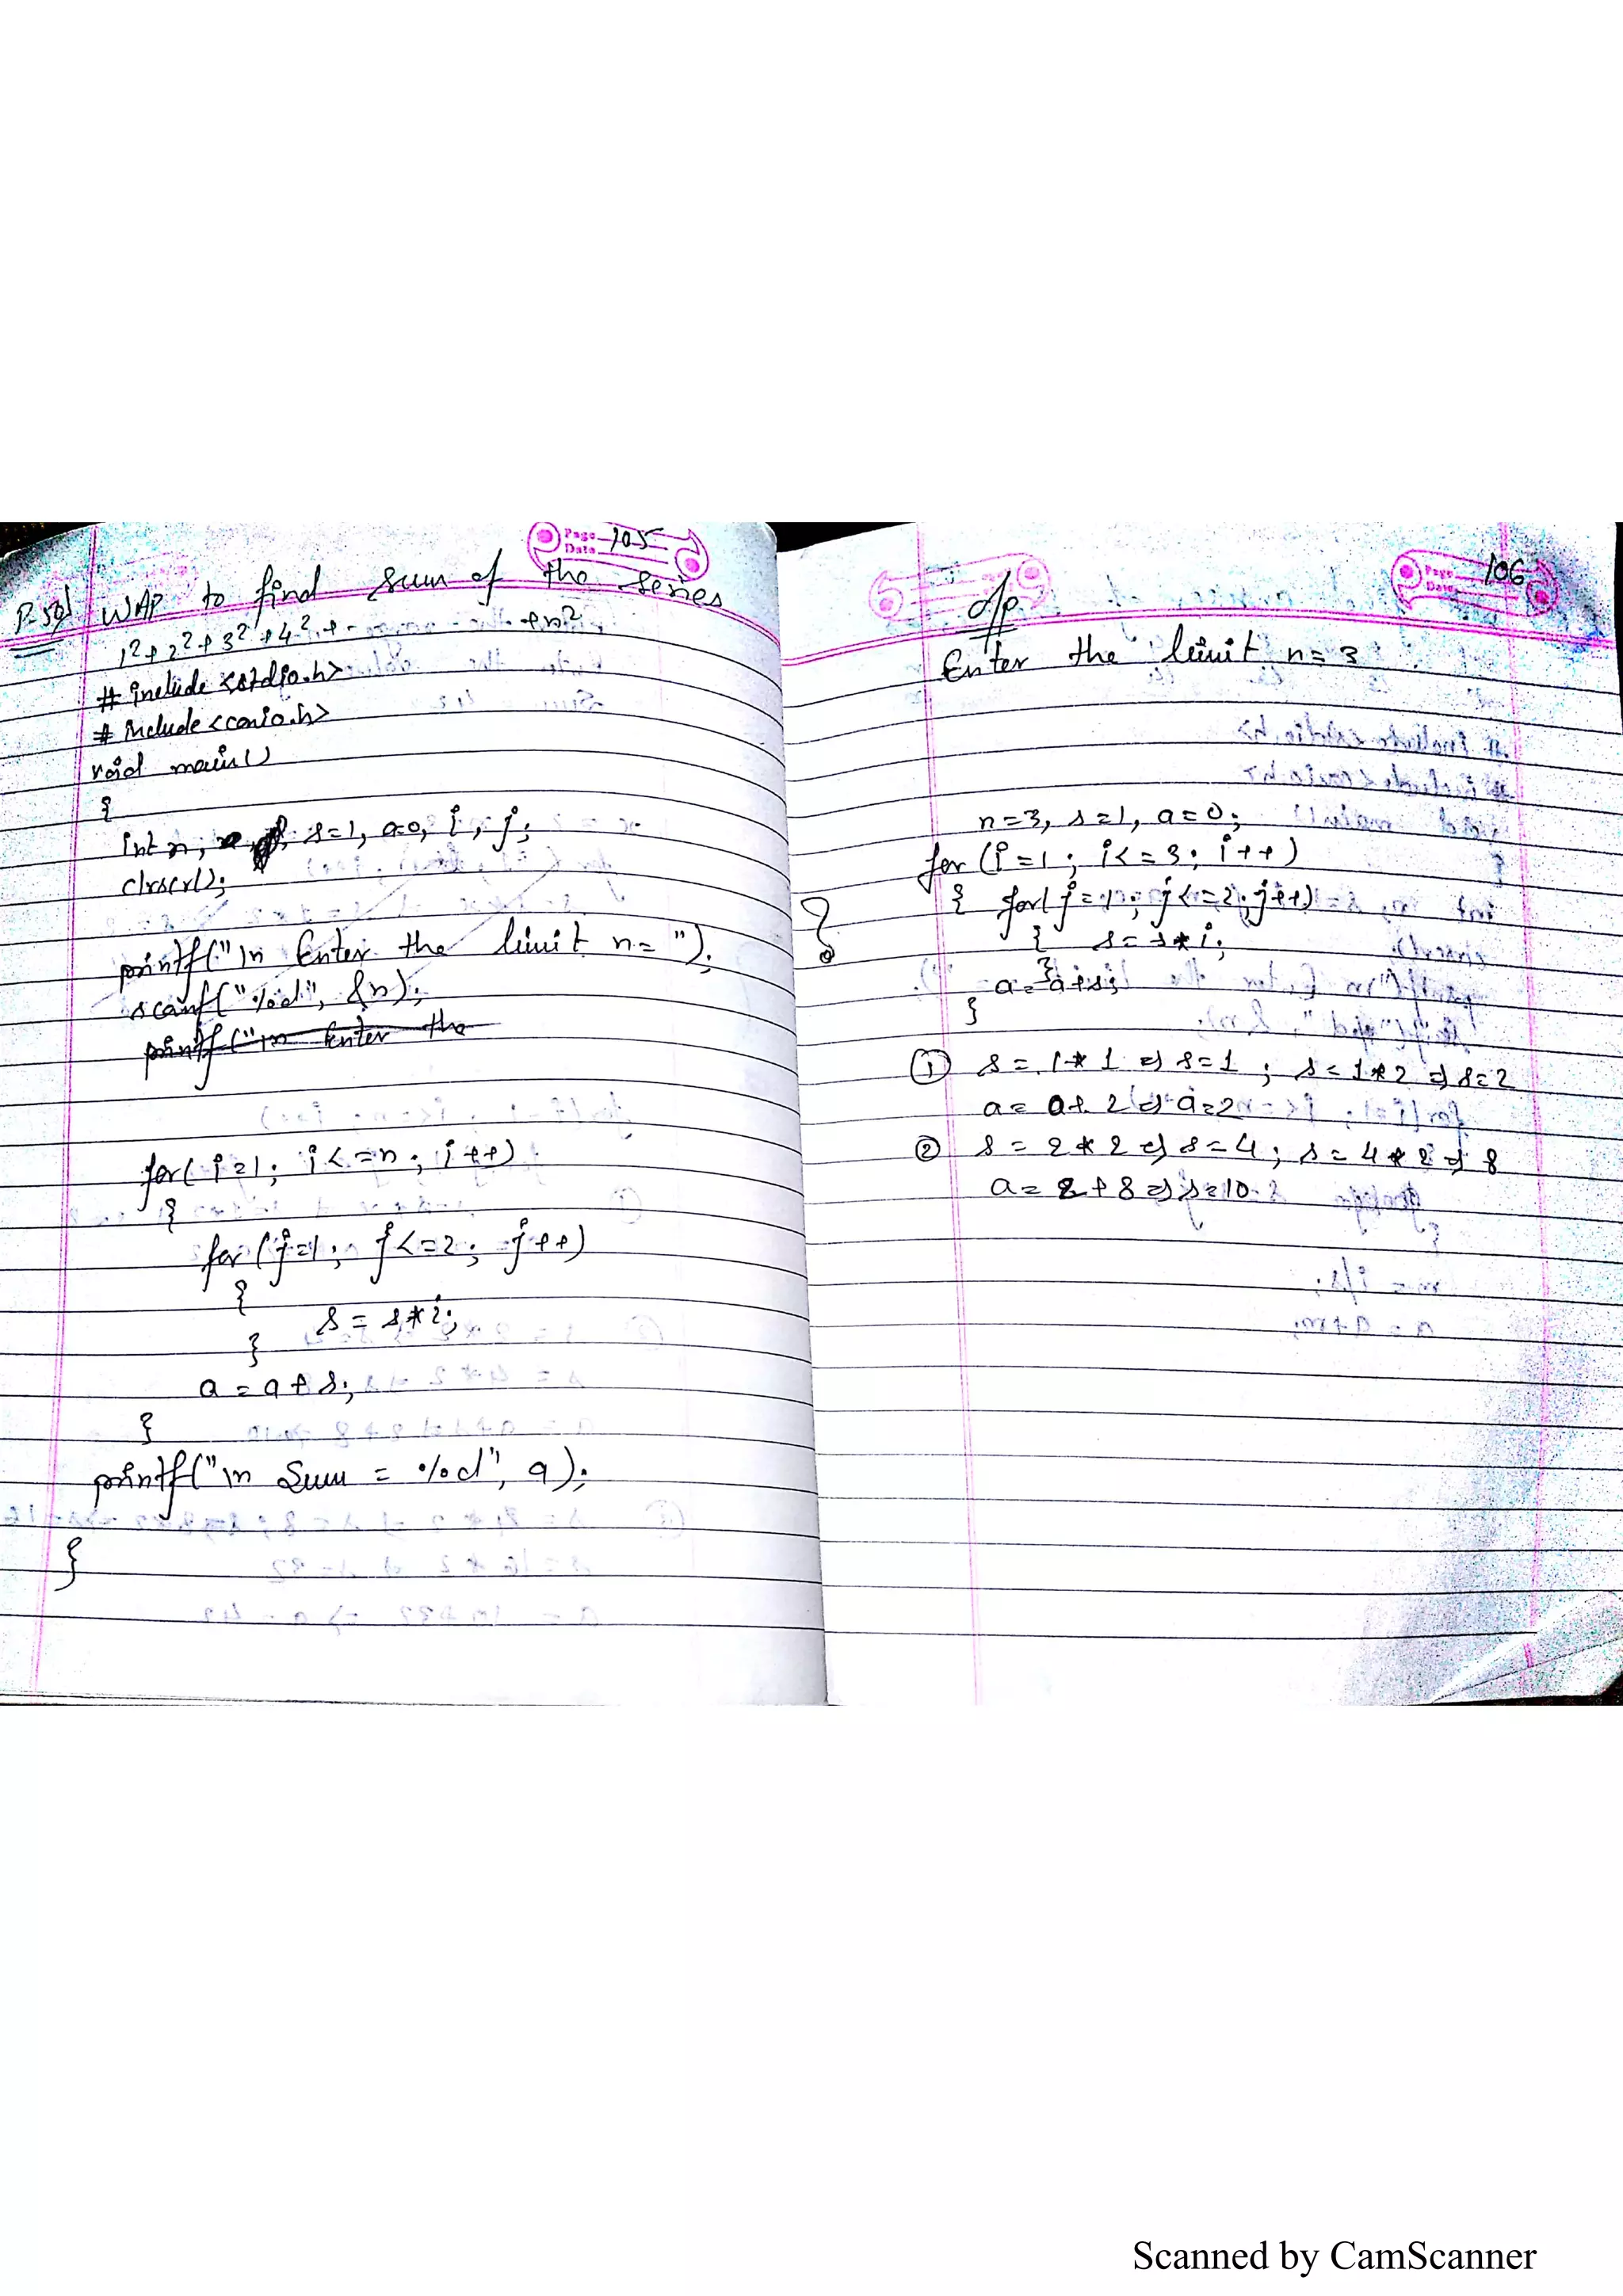 Page 105
Date
P-50) WAP to find sum of the series
1²+2²+3²+4²+ - - - - - - - +n²
# include <stdio.h>
# include <conio.h>
void main()
{
int n, s=1, a=0, i, j;
clrscr();
printf("\n Enter the limit n= ");
scanf("%d", &n);
printf("\n Enter the
for( i=1; i<=n; i++)
{
for (j=1; j<=2; j++)
{
s = s*i;
}
a = a+s;
}
printf("\n Sum = %d", a);
}
Page 106
Date
o/p
Enter the limit n= 3
n=3, s=1, a=0;
for (i=1; i<=3; i++)
{ for(j=1; j<=2; j++)
{ s= s*i;
}
a= a+s;
}
① s = 1*1 => s=1 ; s= 1*2 => s=2
a= 0+ 2 => a=2
② s = 2*2 => s=4; s= 4*2 => 8
a= 2+8 => s=10
?
Scanned by CamScanner